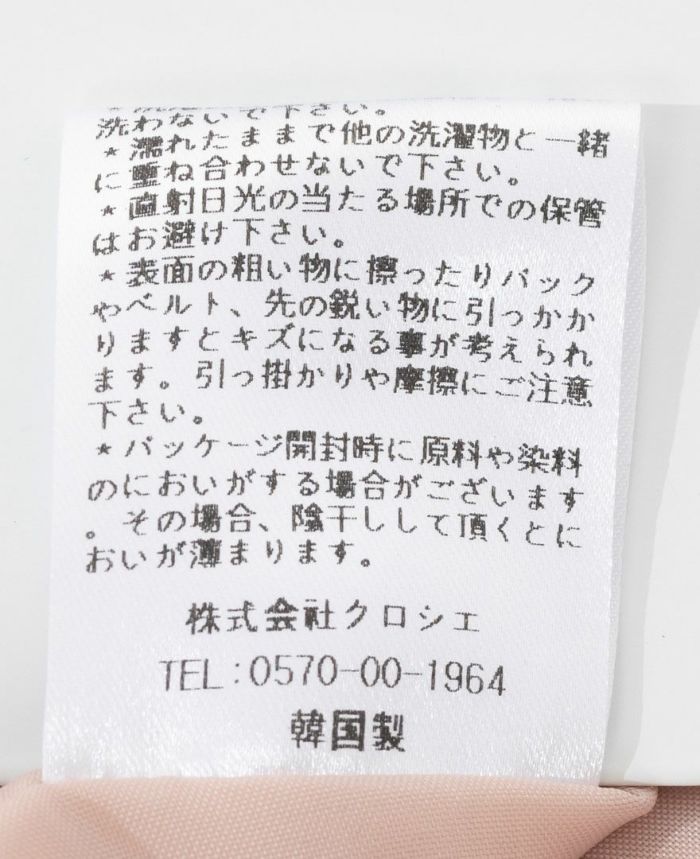 洗わないで下さい。
★濡れたままで他の洗濯物と一緒
に重ね合わせないで下さい。
★直射日光の当たる場所での保管
はお避け下さい。
★表面の粗い物に擦ったりバック
やベルト、先の鋭い物に引っかか
りますとキズになる事が考えられ
ます。引っ掛かりや摩擦にご注意
下さい。
★パッケージ開封時に原料や染料
のにおいがする場合がございます
。その場合、陰干しして頂くとに
おいが薄まります。
株式会社クロシェ
TEL:0570-00-1964
韓国製